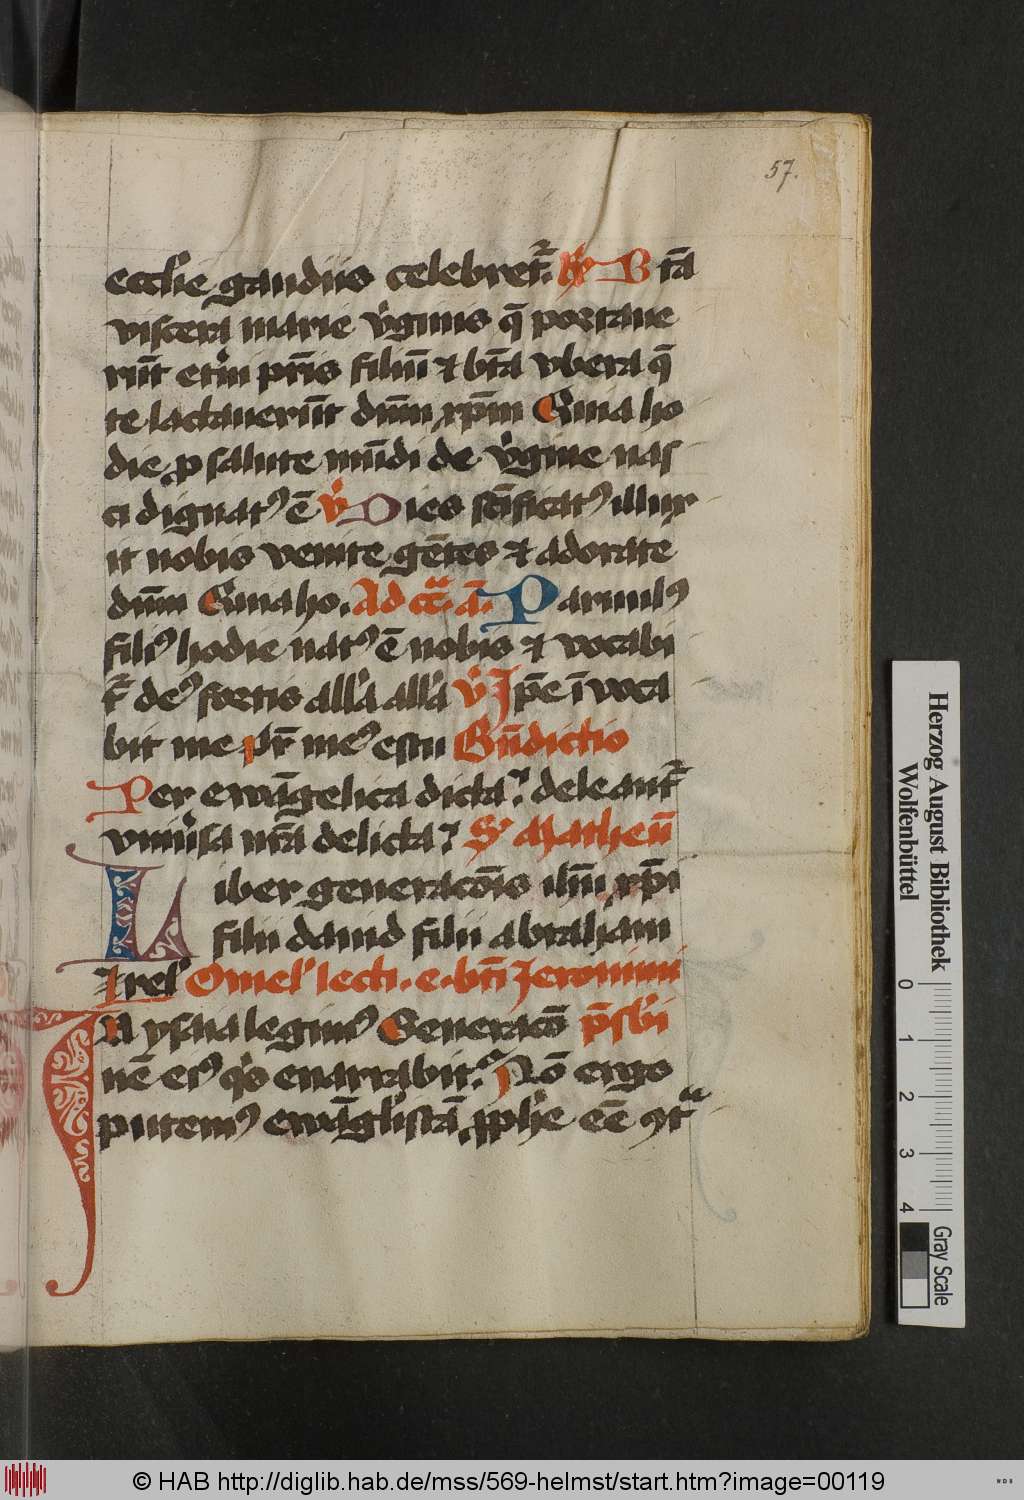 57.
eccl'ie gaudiis celebret᷑. R B t̄a
viscera marie v'ginis q̄ portaue
rūt et'ni pr̄is filiū ⁊ bt̄a vbera q̄
te lactauerūt dn̄m xp̄m Quia ho
die ꝓ salute mūdi de v'gine nas
ci dignatꝰ ē v' Dies sc̄ificatꝰ illux
it nobis venite gētes ⁊ adorate
dn̄m Quia ho. Ad cc̄. a. Paruulꝰ
filiꝰ hodie natꝰ ē nobis ⁊ vocabi
t᷑ deꝰ fortis all'a all'a v' Ip̄e īuoca
bit me pr̄ meꝰ es tu Bn̄dictio
Per ewāgelica dicta. deleant᷑
vniu'sa nr̄a delicta. S' Matheū
Liber generacōis ihū xp̄i
filii dauid filii abraham
Et rel' Omel' lecti. e. bt̄i Jeronimi
In ysaia legimꝰ Generacō p̄sb'i
nē eiꝰ q's enarrabit. Nō ergo
putemꝰ ewāgl'istā ꝓph'e eē ꝯt᷑ª
Herzog August Bibliothek
Wolfenbüttel
0 1 2 3 4
Gray Scale
© HAB http://diglib.hab.de/mss/569-helmst/start.htm?image=00119